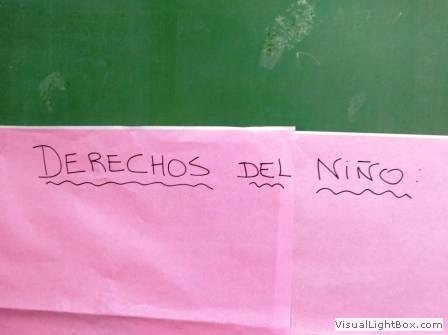 DERECHOS DEL NIÑO:
VisualLightBox.com